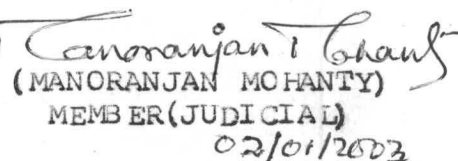 Manoranjan Mohanty
(MANORANJAN MOHANTY)
MEMBER(JUDICIAL)
02/01/2003